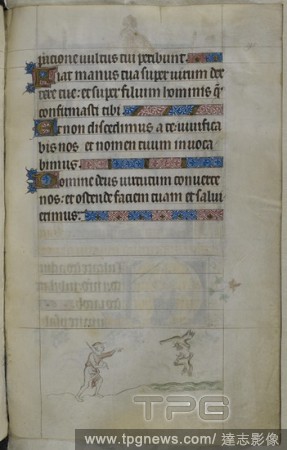 pacione vultus tui peribunt.
Fiat manus tua super virum dex
tere tue: et super filium hominis q̄
confirmasti tibi.
Et non discedimus a te: vivifica
bis nos et nomen tuum invoca
bimus.
Domine deus virtutum converte
nos: et ostende faciem tuam et salvi
erimus:
TPG
www.tpgnews.com/ 達志影像